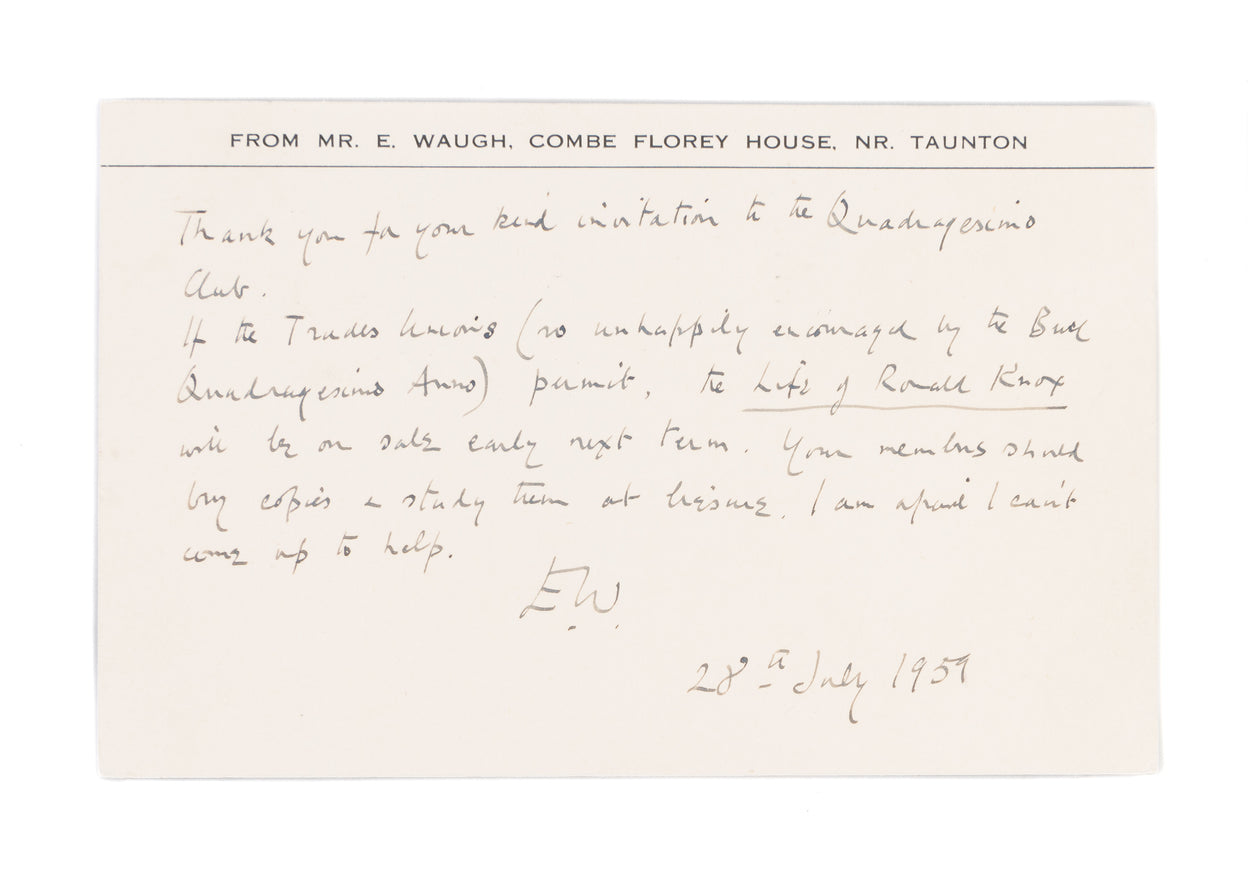 FROM MR. E. WAUGH, COMBE FLOREY HOUSE, NR. TAUNTON
Thank you for your kind invitation to the Quadragesimo
Club.
If the Trades Unions (so unhappily encouraged by the Bull
Quadragesimo Anno) permit, the Life of Ronald Knox
will be on sale early next term. Your members should
buy copies & study them at leisure. I am afraid I can't
come up to help.
E.W.
28th July 1959